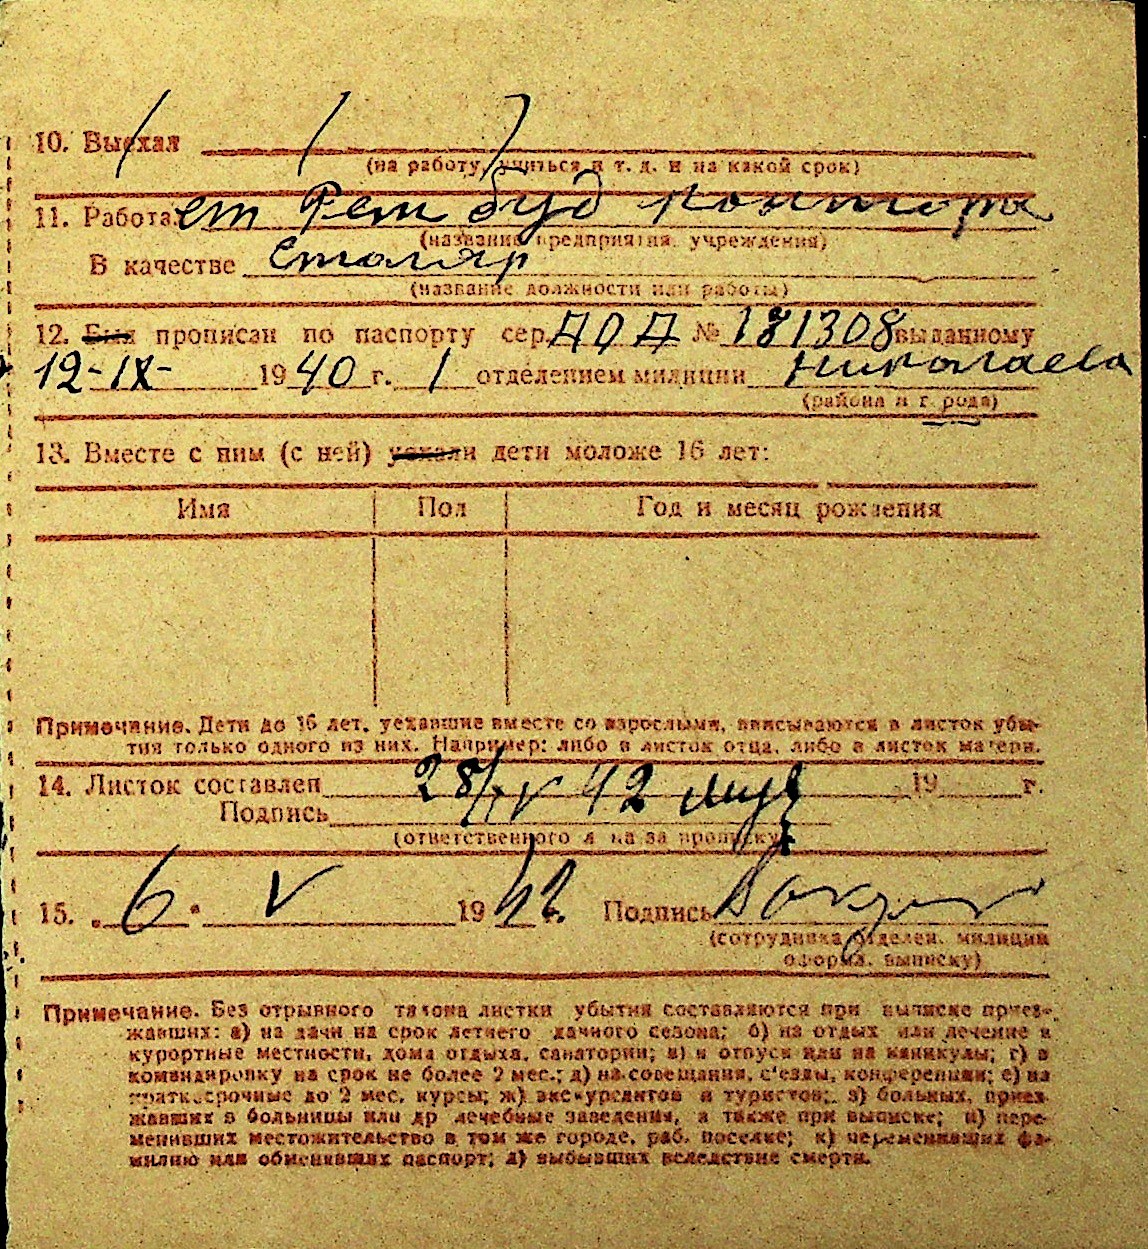 10. Выехал
(на работу, учиться и т. д. и на какой срок)
11. Работает Рем буд контора
(название предприятия, учреждения)
В качестве столяр
(название должности или работы)
12. Был прописан по паспорту сер. № 181308 выданному
12-IX- 1940 г. 1 отделением милиции Николаева
(района и города)
13. Вместе с ним (с ней) уехали дети моложе 16 лет:
Имя Пол Год и месяц рождения
Примечание. Дети до 16 лет, уехавшие вместе со взрослыми, вписываются в листок убы-
тия только одного из них. Например: либо в листок отца, либо в листок матери.
14. Листок составлен 28/IV 42 19 г.
Подпись
(ответственного л на за прописку)
15. „6" V 1942. Подпись
(сотрудника отделен. милиции
оформ. выписку)
Примечание. Без отрывного талона листки убытия составляются при выписке приез-
жавших: а) на дачи на срок летнего дачного сезона; б) на отдых или лечение в
курортные местности, дома отдыха, санатории; в) в отпуск или на каникулы; г) в
командировку на срок не более 2 мес.; д) на совещания, с'езды, конференции; е) на
краткосрочные до 2 мес. курсы; ж) экскурсантов и туристов; з) больных, приез-
жавших в больницы или др лечебные заведения, а также при выписке; и) пере-
менивших местожительство в том же городе, раб. поселке; к) переменивших фа-
милию или обменивших паспорт; л) выбывших вследствие смерти.